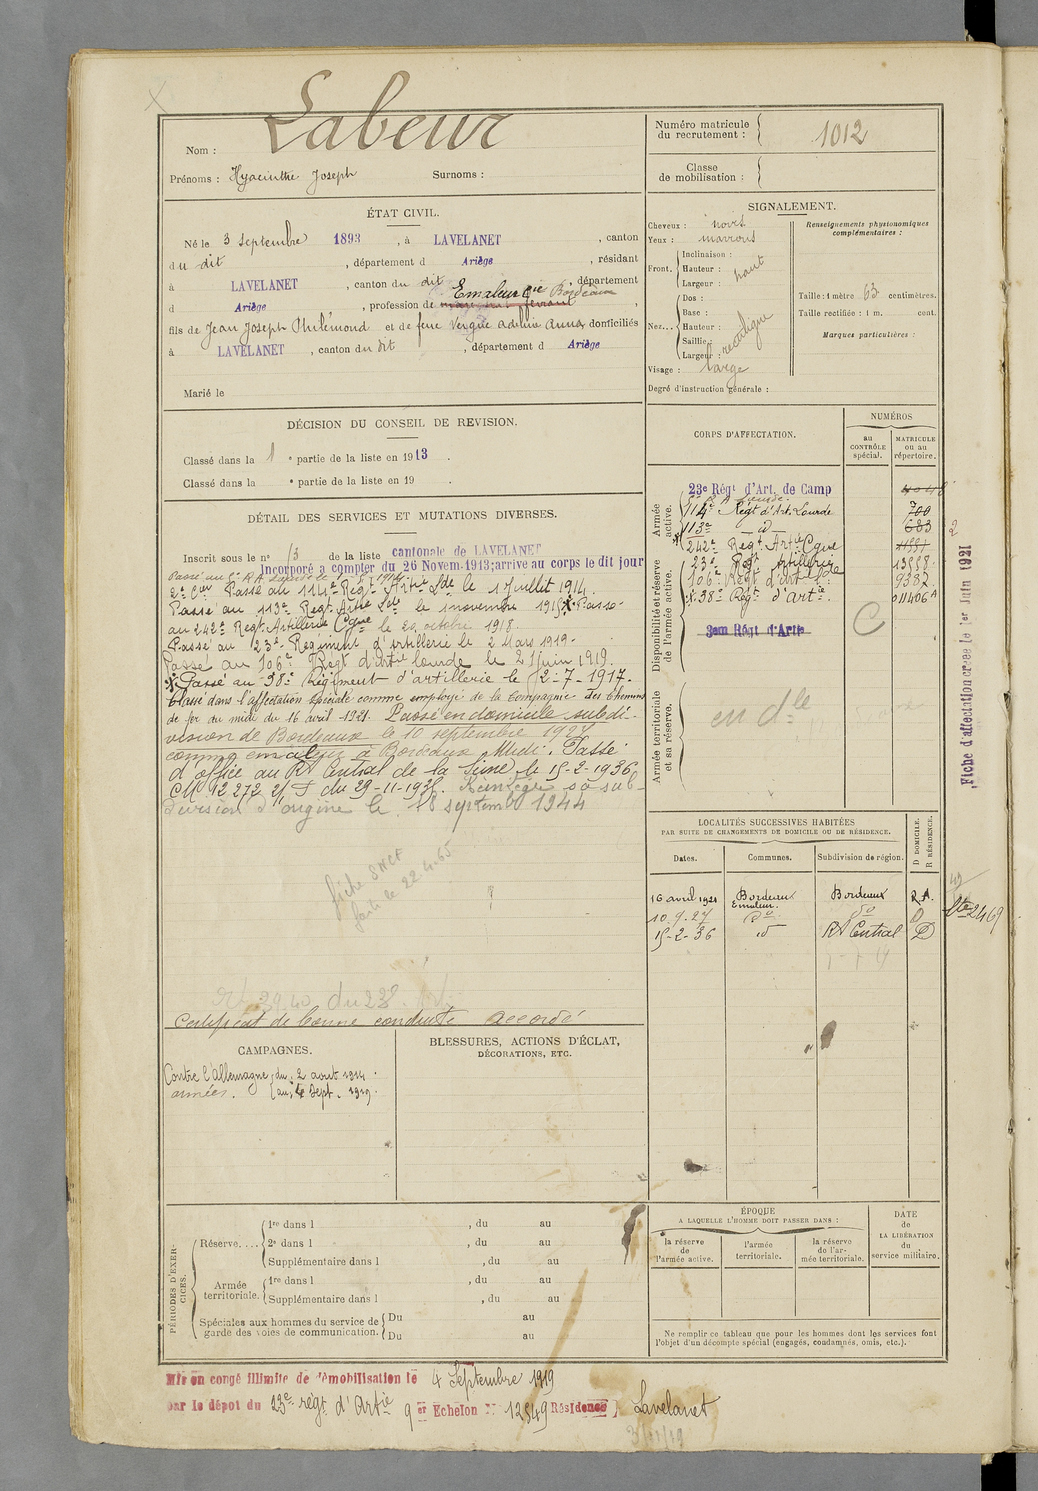 Labeur
Nom :
Prénoms : Hyacinthe Joseph Surnoms :
Numéro matricule
du recrutement : 1012
Classe
de mobilisation :
ÉTAT CIVIL.
Né le 3 septembre 1893, à LAVELANET, canton
du dit, département d Ariège, résidant
à LAVELANET, canton du dit, département
d Ariège, profession de Emaleur Cie Bordeaux,
fils de Jean Joseph Philémond et de feue Vergué Adeline Anna domiciliés
à LAVELANET, canton du dit, département d Ariège
Marié le
SIGNALEMENT.
Cheveux : noirs
Yeux : marrons
Front. Inclinaison :
Hauteur : haut
Largeur :
Nez... Dos :
Base :
Hauteur :
Saillie :
Largeur : rectiligne
Visage : large
Degré d'instruction générale :
Renseignements physionomiques
complémentaires :
Taille : 1 mètre 63 centimètres.
Taille rectifiée : 1 m. cent.
Marques particulières :
DÉCISION DU CONSEIL DE REVISION.
Classé dans la 1 e partie de la liste en 1913.
Classé dans la e partie de la liste en 19 .
DÉTAIL DES SERVICES ET MUTATIONS DIVERSES.
Inscrit sous le no 13 de la liste cantonale de LAVELANET
Incorporé à compter du 26 Novem. 1913; arrivé au corps le dit jour
2e Cier Passé au 114e Régt Artie Lde le 1 Juillet 1914.
Passé au 113e Régt Artie Lde le 1 novembre 1915 X Passé
au 242e Régt Artillerie Cgne le 20 octobre 1918.
Passé au 23e Régiment d'artillerie le 2 Mars 1919.
Passé au 106e Régt d'artie lourde le 21 Juin 1919.
X Passé au 38e Régiment d'artillerie le 12-7-1917.
Classé dans l'affectation spéciale comme employé de la Compagnie des Chemins
de fer du midi du 16 avril 1921. Passé en domicile subdi-
vision de Bordeaux le 10 septembre 1927
comme emaleur à Bordeaux Midi. Passé
d'office au RT Central de la Seine le 15-2-1936
CM 92 272 du 29-11-1935. Réintégré sa sub-
division d'origine le 18 septembre 1944
fiche SNCF
faite le 22.4.65
Certificat de bonne conduite accordé
CORPS D'AFFECTATION.
NUMÉROS
au
CONTRÔLE
spécial.
MATRICULE
ou au
répertoire.
Armée
active.
23e Régt d'Art. de Camp
114e Régt d'Art. Lourde 700
113e —d— 683
242e Régt Artie Cgne 11991
Disponibilité et réserve
de l'armée active.
23e Régt Artillerie 13558
106e Régt d'artie 9382
X 38e Régt d'Artie 011406A
3eme Régt d'Artie
C
Armée territoriale
et sa réserve.
en dle
Fiche d'affectation créée le 1er Juin 1921
LOCALITÉS SUCCESSIVES HABITÉES
PAR SUITE DE CHANGEMENTS DE DOMICILE OU DE RÉSIDENCE.
Dates. Communes. Subdivision de région. D DOMICILE. R RÉSIDENCE.
16 avril 1921 Bordeaux Bordeaux R.A.
Emaleur.
10.9.27 do do D
15-2-36 d RT Central D
CAMPAGNES.
Contre l'Allemagne du 2 août 1914
armées. au 4 Sept. 1919
BLESSURES, ACTIONS D'ÉCLAT,
DÉCORATIONS, ETC.
PÉRIODES D'EXER-
CICES.
Réserve.... 1re dans l , du au
2e dans l , du au
Supplémentaire dans l , du au
Armée
territoriale. 1re dans l , du au
Supplémentaire dans l , du au
Spéciales aux hommes du service de
garde des voies de communication. Du au
Du au
ÉPOQUE
A LAQUELLE L'HOMME DOIT PASSER DANS :
la réserve
de
l'armée active.
l'armée
territoriale.
la réserve
de l'ar-
mée territoriale.
DATE
de
LA LIBÉRATION
du
service militaire.
Ne remplir ce tableau que pour les hommes dont les services font
l'objet d'un décompte spécial (engagés, condamnés, omis, etc.).
Mis en congé illimité de démobilisation le 4 Septembre 1919
par le dépôt du 23e régt d'Artie 9 er Echelon No 12549 Résidence Lavelanet